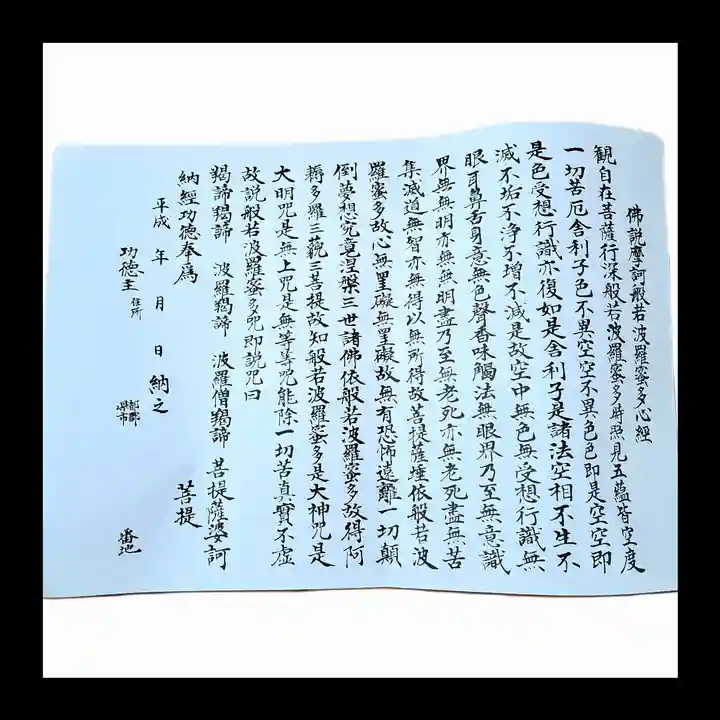 佛説摩訶般若波羅蜜多心經
観自在菩薩行深般若波羅蜜多時照見五蘊皆空度
一切苦厄舎利子色不異空空不異色色即是空空即
是色受想行識亦復如是舎利子是諸法空相不生不
滅不垢不浄不増不減是故空中無色無受想行識無
眼耳鼻舌身意無色聲香味觸法無眼界乃至無意識
界無無明亦無無明盡乃至無老死亦無老死盡無苦
集滅道無智亦無得以無所得故菩提薩埵依般若波
羅蜜多故心無罣礙無罣礙故無有恐怖遠離一切顛
倒夢想究竟涅槃三世諸佛依般若波羅蜜多故得阿
耨多羅三藐三菩提故知般若波羅蜜多是大神咒是
大明咒是無上咒是無等等咒能除一切苦真實不虚
故説般若波羅蜜多咒即説咒曰
羯諦羯諦 波羅羯諦 波羅僧羯諦 菩提薩婆訶
納經功徳奉爲 菩提
平成 年 月 日 納之
功徳主 住所 都郡 県市 番地